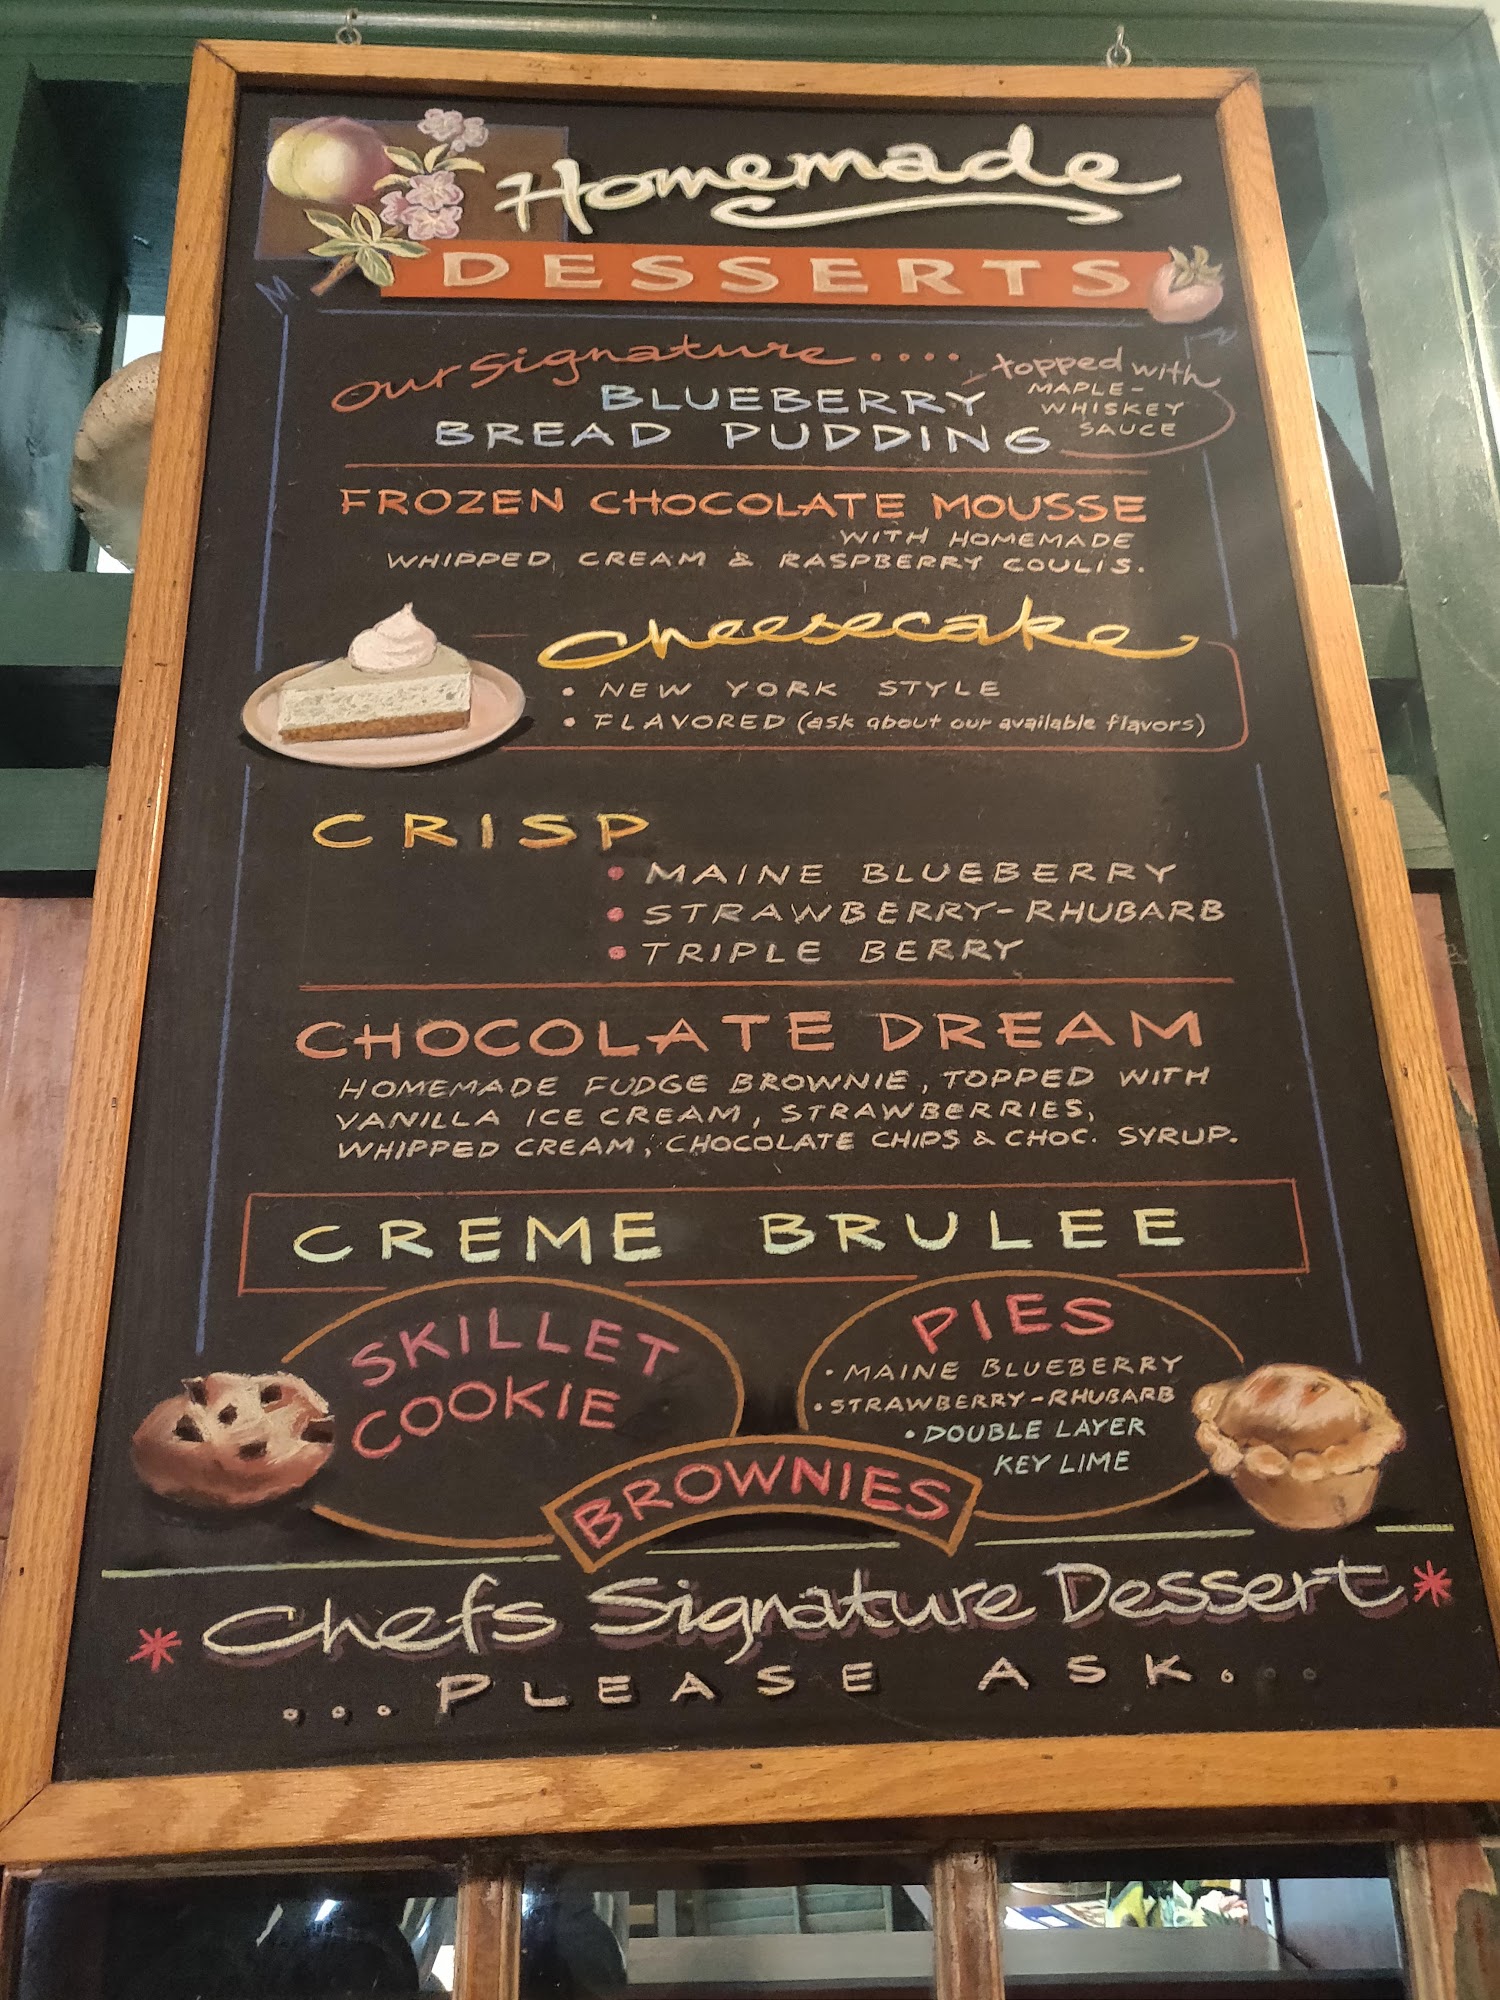 Homemade
DESSERTS
our signature ....
BLUEBERRY
BREAD PUDDING
topped with
MAPLE-
WHISKEY
SAUCE
FROZEN CHOCOLATE MOUSSE
WITH HOMEMADE
WHIPPED CREAM & RASPBERRY COULIS.
Cheesecake
• NEW YORK STYLE
• FLAVORED (ask about our available flavors)
CRISP
• MAINE BLUEBERRY
• STRAWBERRY-RHUBARB
• TRIPLE BERRY
CHOCOLATE DREAM
HOMEMADE FUDGE BROWNIE, TOPPED WITH
VANILLA ICE CREAM, STRAWBERRIES,
WHIPPED CREAM, CHOCOLATE CHIPS & CHOC. SYRUP.
CREME BRULEE
SKILLET
COOKIE
PIES
• MAINE BLUEBERRY
• STRAWBERRY-RHUBARB
• DOUBLE LAYER
KEY LIME
BROWNIES
* Chefs Signature Dessert *
... PLEASE ASK...